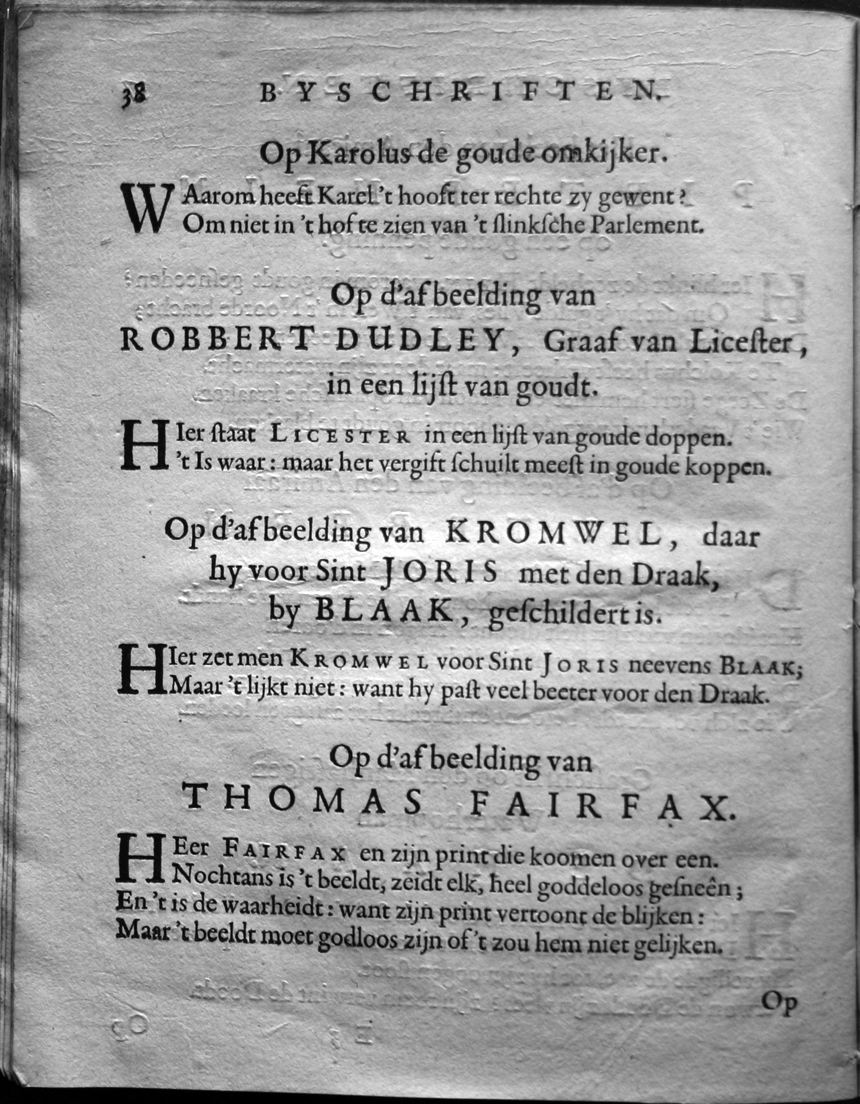 38 BYSCHRIFTEN.
Op Karolus de goude omkijker.
WAarom heeft Karel 't hooft ter rechte zy gewent?
Om niet in 't hof te zien van 't slinksche Parlement.
Op d'afbeelding van
ROBBERT DUDLEY, Graaf van Licester,
in een lijst van goudt.
HIer staat LICESTER in een lijst van goude doppen.
't Is waar: maar het vergift schuilt meest in goude koppen.
Op d'afbeelding van KROMWEL, daar
hy voor Sint JORIS met den Draak,
by BLAAK, geschildert is.
HIer zet men KROMWEL voor Sint JORIS neevens BLAAK;
Maar 't lijkt niet: want hy past veel beeter voor den Draak.
Op d'afbeelding van
THOMAS FAIRFAX.
HEer FAIRFAX en zijn print die koomen over een.
Nochtans is 't beeldt, zeidt elk, heel goddeloos gesneên;
En 't is de waarheidt: want zijn print vertoont de blijken:
Maar 't beeldt moet godloos zijn of 't zou hem niet gelijken.
Op